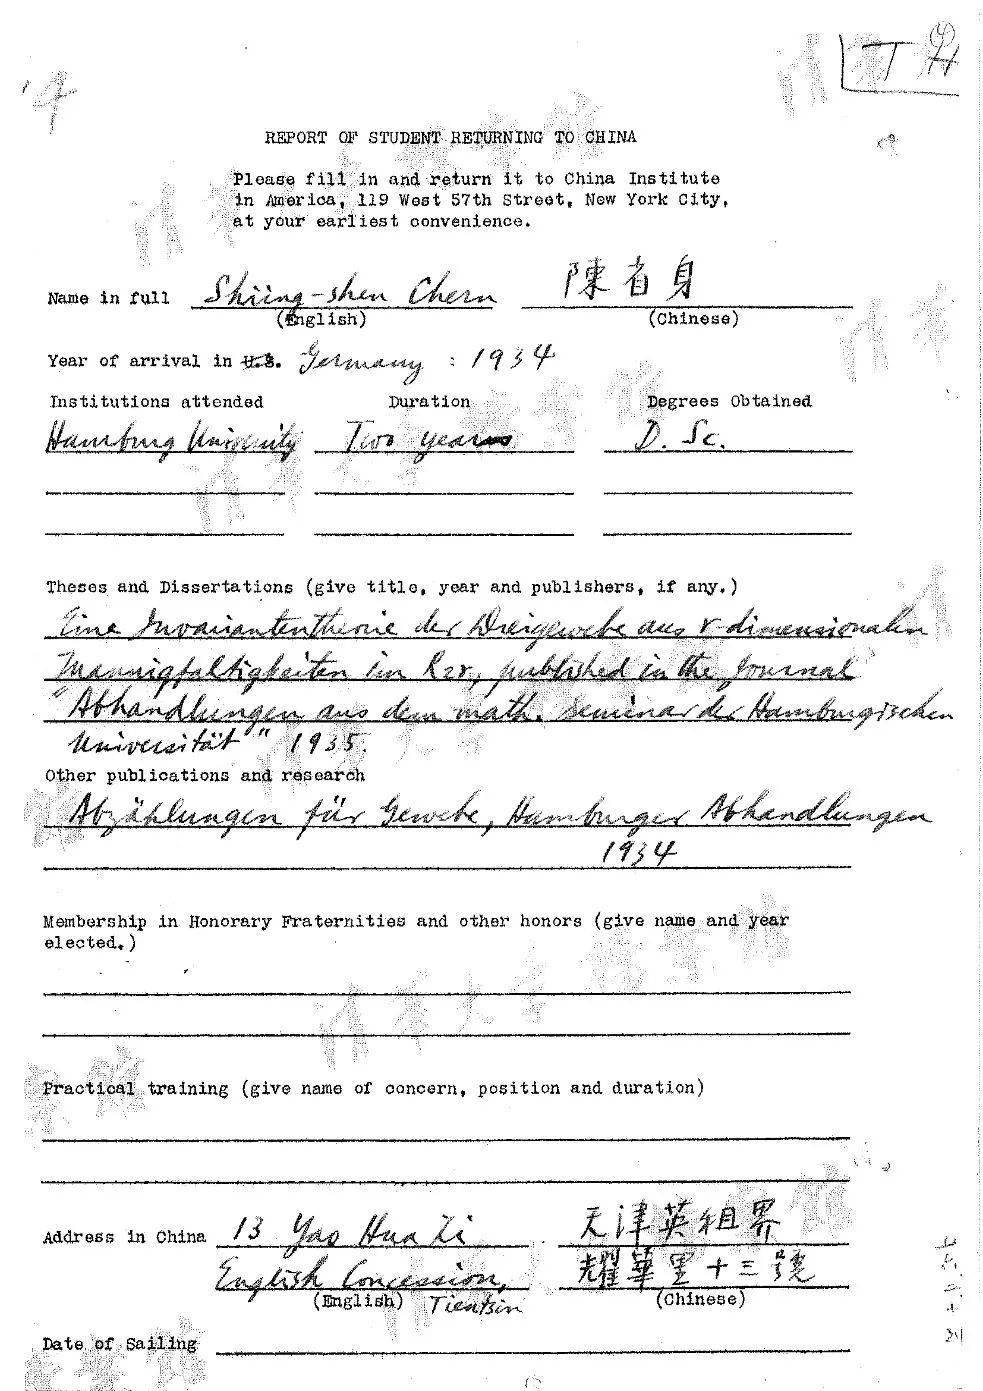 T
REPORT OF STUDENT RETURNING TO CHINA
Please fill in and return it to China Institute
in America, 119 West 57th Street, New York City,
at your earliest convenience.
Name in full Shiing-shen Chern 陳省身
(English) (Chinese)
Year of arrival in U.S. Germany : 1934
Institutions attended Duration Degrees Obtained
Hamburg University Two years D. Sc.
Theses and Dissertations (give title, year and publishers, if any.)
Eine Invariantentheorie der Dreigewebe aus r-dimensionalen
Mannigfaltigkeiten im R2r, published in the Journal
"Abhandlungen aus dem math. Seminar der Hamburgischen
Universität" 1935.
Other publications and research
Abzählungen für Gewebe, Hamburger Abhandlungen
1934
Membership in Honorary Fraternities and other honors (give name and year
elected.)
清华大学档案馆
Practical training (give name of concern, position and duration)
Address in China 13 Yao Hua Li 天津英租界
English Concession, 耀華里十三號
(English) Tientsin (Chinese)
Date of Sailing